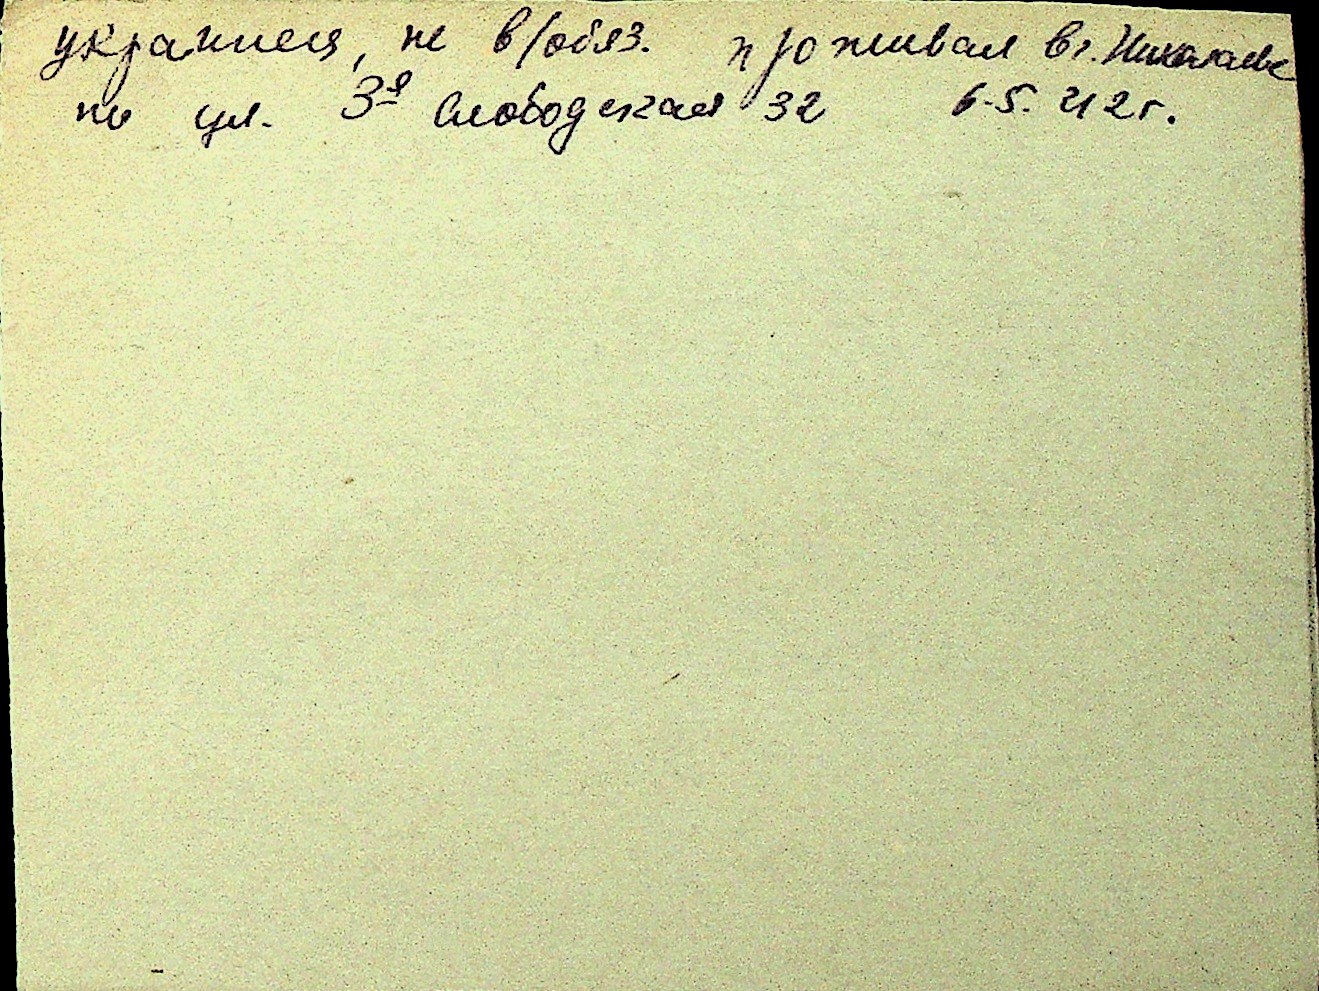 украинец, не в/обяз. проживал в г. Николаеве
по ул. 3я Слободская 32 6.5.42г.